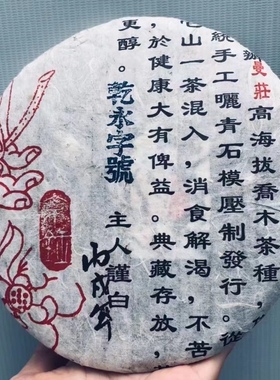 曼莊高海拔喬木茶種，
統手工曬青石模壓制發行。從
它山一茶混入，消食解渴，不苦
，於健康大有俾益。典藏存放，
更醇。
乾永字號
主人謹白
丙戌年